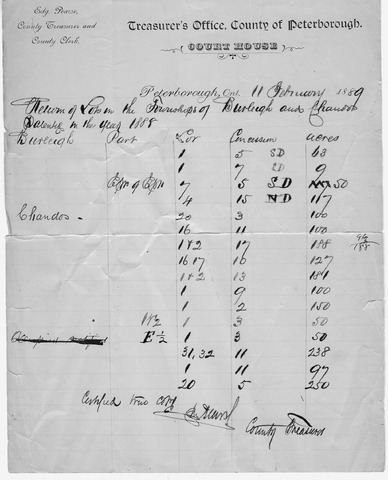 Edg. Pearse,
County Treasurer and
County Clerk.
Treasurer's Office, County of Peterborough.
COURT HOUSE
Peterborough, Ont. 11 February 1889
Return of Lots in the Townships of Burleigh and Chandos
Patented in the year 1888
Burleigh Part Lot Concession acres
1 5 SD 63
1 7 SD 9
7 5 SD 50
4 15 ND 117
Chandos 20 3 100
16 11 100
1&2 17 188
16 17 16 127
1&2 13 181
1 9 100
1 2 150
W½ 1 3 50
E½ 1 3 50
31, 32 11 238
1 11 97
20 5 250
Certified true copy
County Treasurer